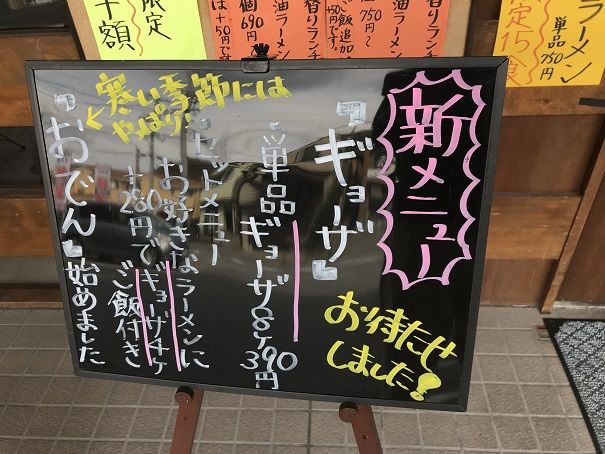 新メニュー
お待たせ
しました!
『ギョーザ』
・単品ギョーザ8ヶ
390円
・セットメニュー
お好きなラーメンに
+280円でギョーザ4ヶ
ご飯付き
寒い季節には
やっぱり!
『おでん』始めました
限定
半額
個690円
は+50円です
油ラーメン
750円〜
ご飯追加
+50円
香りランチ
ラーメン
単品750円
限定15食